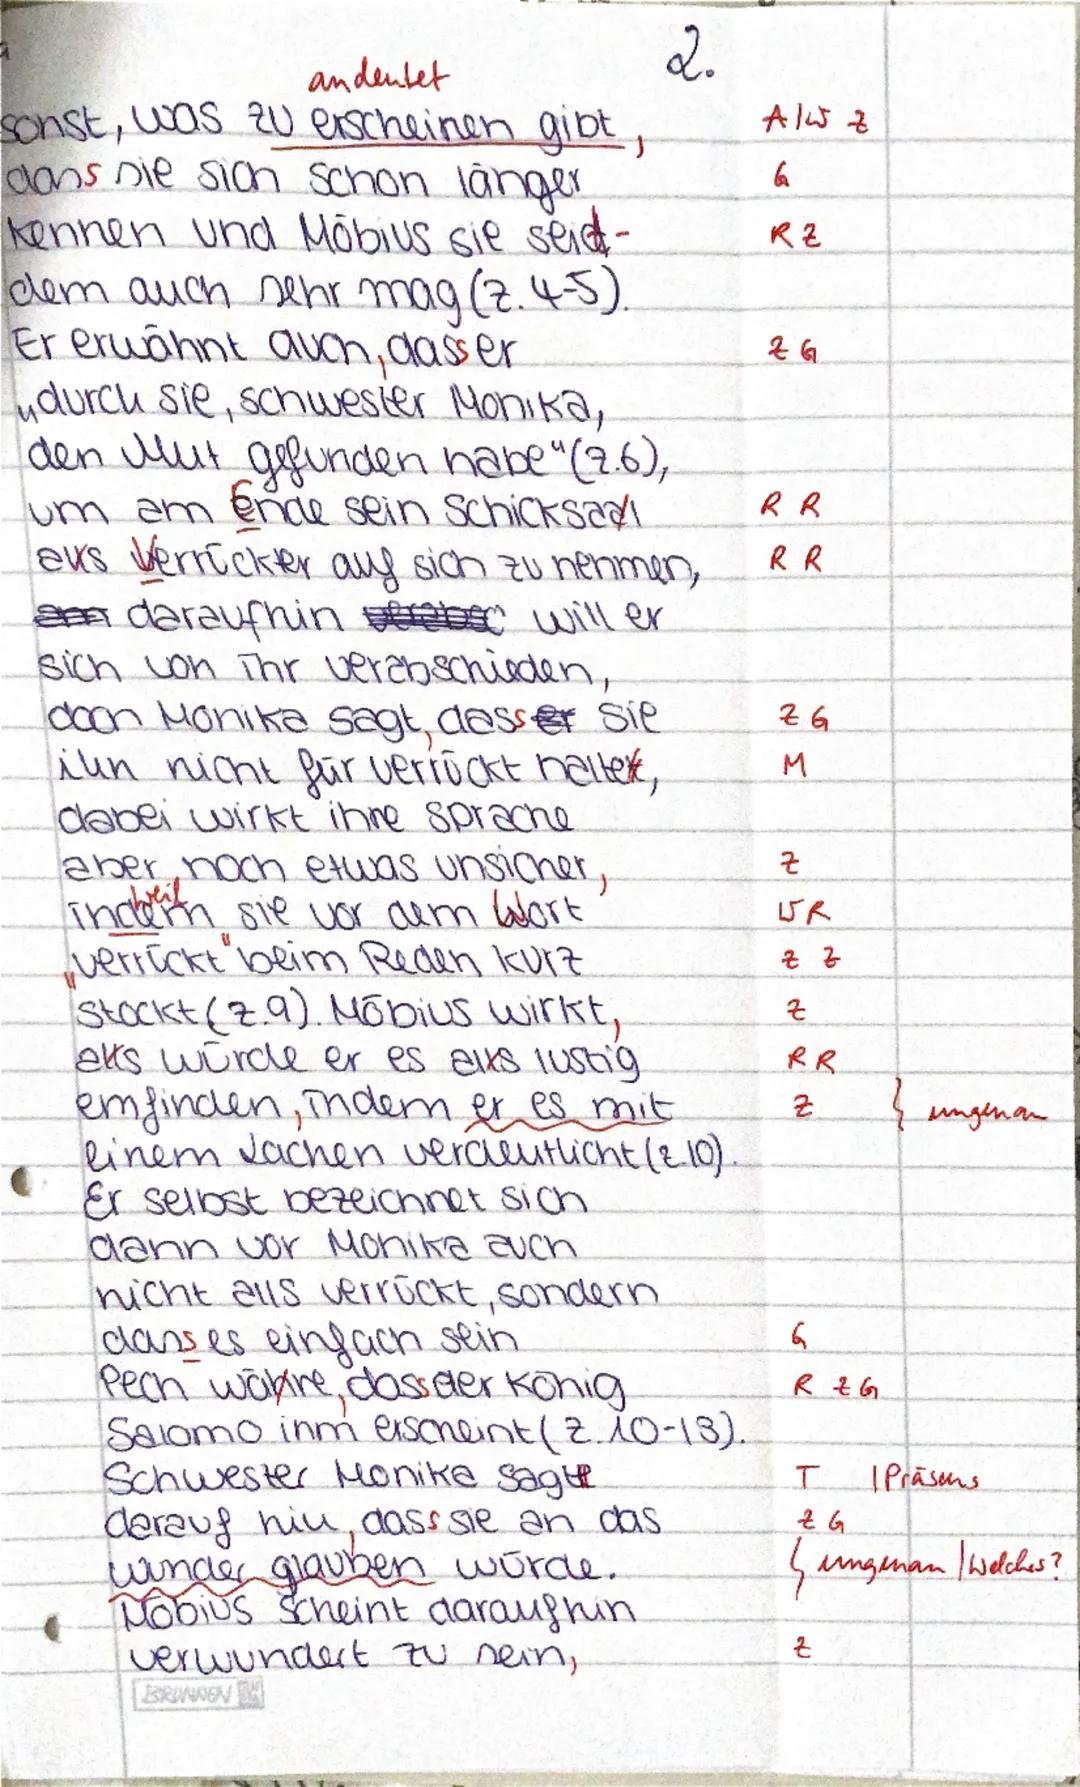 2.
andeutet
sonst, was zu erscheinen gibt, A/W Z
dass sie sich schon länger G
kennen und Möbius sie seit- R Z
dem auch sehr mag (Z. 4-5).
Er erwähnt auch, dass er Z G
„durch sie, schwester Monika,
den Mut gefunden habe" (Z.6),
um am Ende sein Schicksaal R R
alls Verrückter auf sich zu nehmen, R R
daraufhin will er
sich von ihr verabschieden,
doch Monika sagt, dass sie Z G
ihn nicht für verrückt halte, M
dabei wirkt ihre sprache
aber noch etwas unsicher, Z
weil
indem sie vor dem Wort W R
„verrückt" beim Reden kurz Z Z
stockt (Z.9). Möbius wirkt, Z
alls würde er es alls lustig R R
emfinden, indem er es mit Z } ungenau
einem Lachen verdeutlicht (Z.10).
Er selbst bezeichnet sich
dann vor Monika auch
nicht alls verrückt, sondern
dass es einfach sein G
Pech währe, dass der König R Z G
Salomo ihm erscheint (Z.10-13).
Schwester Monika sagte T | Präsens
darauf hin, dass sie an das Z G
wunder glauben würde. { ungenau | Welches?
Möbius scheint daraufhin
verwundert zu sein, Z
BRUNNEN